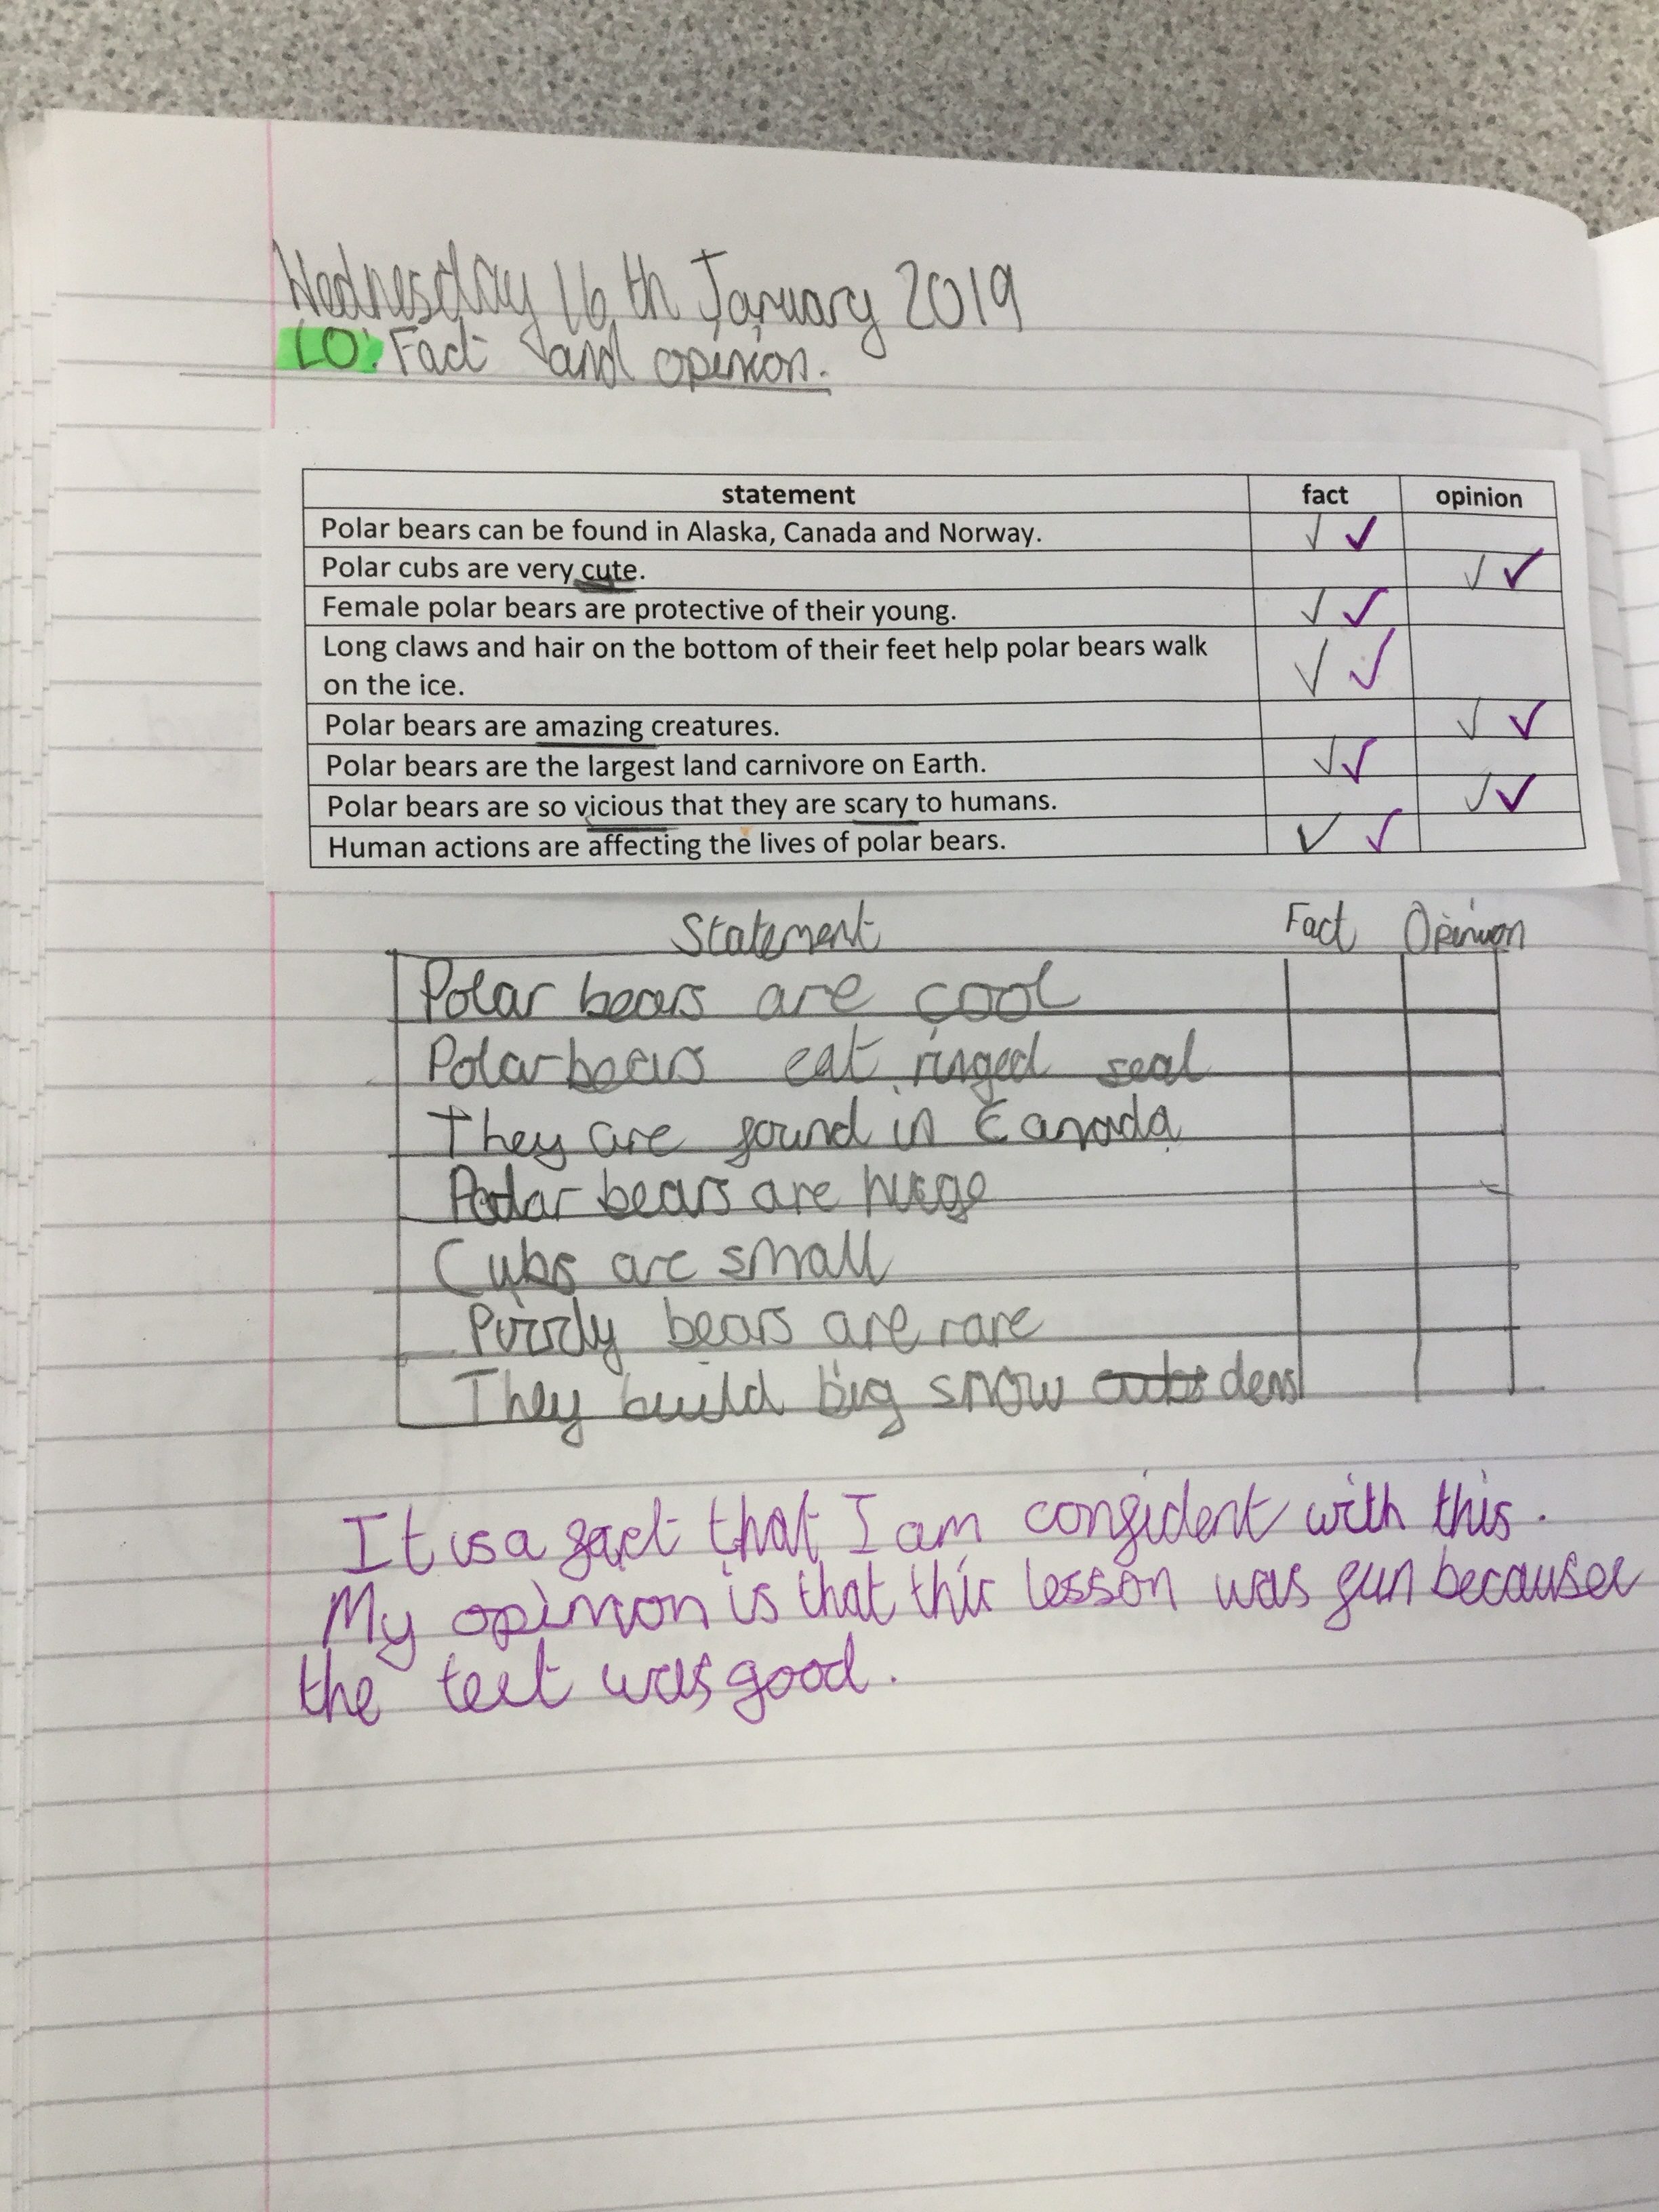 Wednesday 16th January 2019
LO: Fact and opinion.
statement fact opinion
Polar bears can be found in Alaska, Canada and Norway. ✓ ✓
Polar cubs are very cute. ✓ ✓
Female polar bears are protective of their young. ✓ ✓
Long claws and hair on the bottom of their feet help polar bears walk
on the ice. ✓ ✓
Polar bears are amazing creatures. ✓ ✓
Polar bears are the largest land carnivore on Earth. ✓ ✓
Polar bears are so vicious that they are scary to humans. ✓ ✓
Human actions are affecting the lives of polar bears. ✓ ✓
Statement Fact Opinion
Polar bears are cool
Polar bears eat ringed seal
They are found in Canada
Polar bears are huge
Cubs are small
bears are rare
They build big snow dens
It is a fact that I am confident with this.
My opinion is that this lesson was fun because
the text was good.